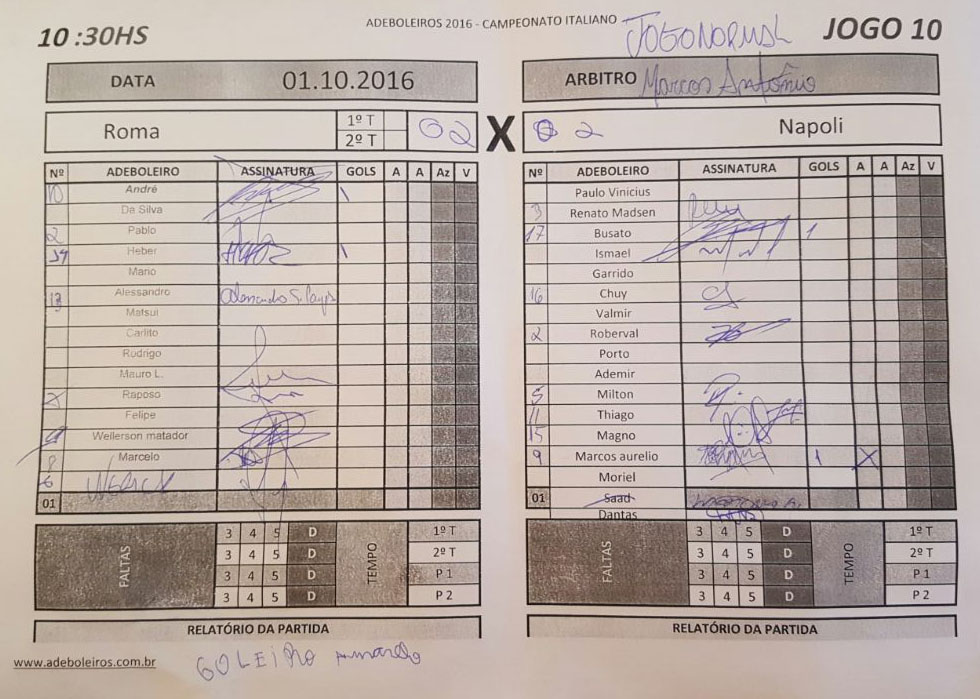 ADEBOLEIROS 2016 - CAMPEONATO ITALIANO
10 :30HS
JOGO NORMAL
JOGO 10
DATA 01.10.2016
ARBITRO Marcos Antônio
Roma 1º T 02 X 02 Napoli
2º T
Nº ADEBOLEIRO ASSINATURA GOLS A A Az V
10 André 1
Da Silva
2 Pablo
Heber 1
Mario
13 Alessandro
Matsui
Carlito
Rodrigo
Mauro L.
Raposo
Felipe
Wellerson matador
8 Marcelo
6
01
Nº ADEBOLEIRO ASSINATURA GOLS A A Az V
Paulo Vinicius
3 Renato Madsen
17 Busato 1
Ismael
Garrido
16 Chuy
Valmir
2 Roberval
Porto
Ademir
5 Milton
11 Thiago
15 Magno
9 Marcos aurelio 1 X
Moriel
01 Saad
Dantas
FALTAS TEMPO
3 4 5 D 1º T
3 4 5 D 2º T
3 4 5 D P 1
3 4 5 D P 2
FALTAS TEMPO
3 4 5 D 1º T
3 4 5 D 2º T
3 4 5 D P 1
3 4 5 D P 2
RELATÓRIO DA PARTIDA
RELATÓRIO DA PARTIDA
www.adeboleiros.com.br
GOLEIRO Amardo